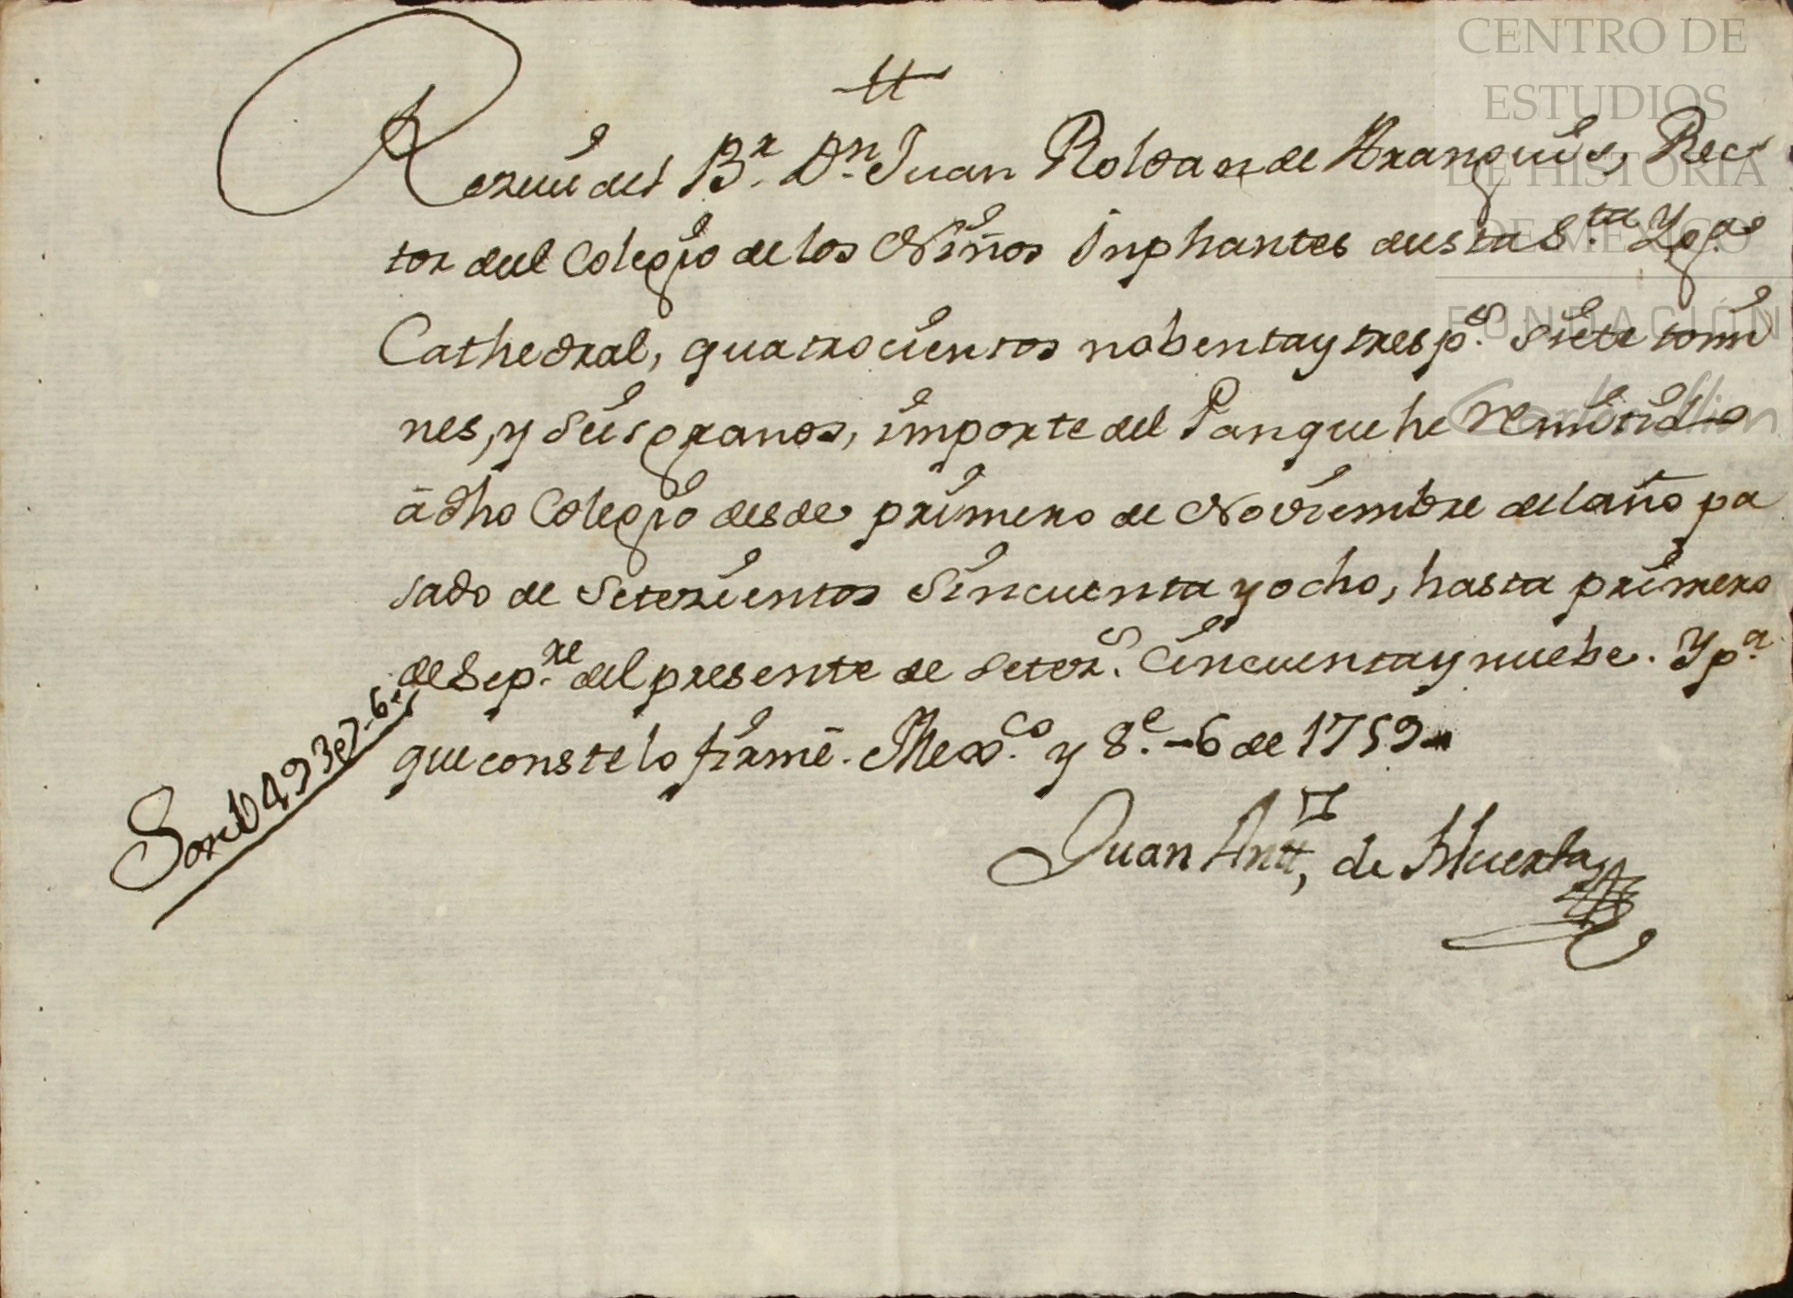 CENTRO DE
ESTUDIOS
DE HISTORIA
DE MEXICO
FUNDACIÓN
Carlos Slim
Rezeui del B.r D.n Juan Roldan de Aranguis, Rec
tor deel Colegio de los Niños Inphantes de esta S.ta Ygª
Cathedral, quatrocientos nobenta y tres p.s siete tomi
nes, y seis granos, importe del Pan que he remitido
â dho Colegio desde primero de Noviembre del año pa
sado de Setezientos Sincuenta y ocho, hasta primero
de Sep.re del presente de setez.s Cincuenta y nuebe. Y p.a
que conste lo firmê. Mex.co y 8.e -6 de 1759
Son 493p 7. 6.
Juan Antt, de Huerta